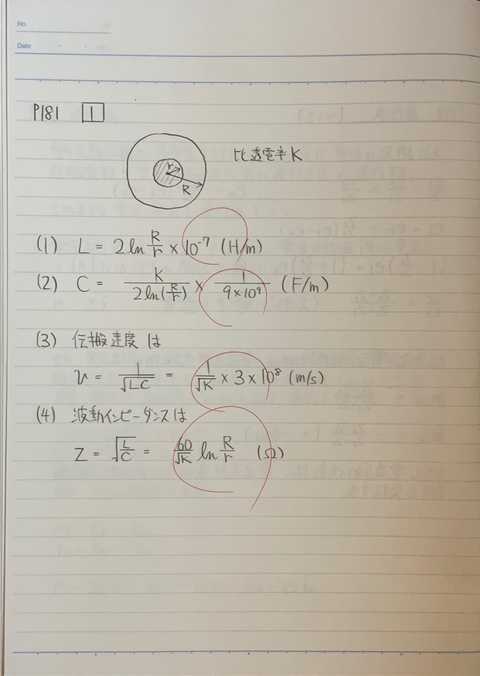 No.
Date
P181 1
r
R
比誘電率 K
(1) L = 2 ln R/r × 10⁻⁷ (H/m)
(2) C = K/(2 ln(R/r)) × 1/(9×10⁹) (F/m)
(3) 伝搬速度は
v = 1/√LC = 1/√K × 3 × 10⁸ (m/s)
(4) 波動インピーダンスは
Z = √(L/C) = 60/√K ln R/r (Ω)